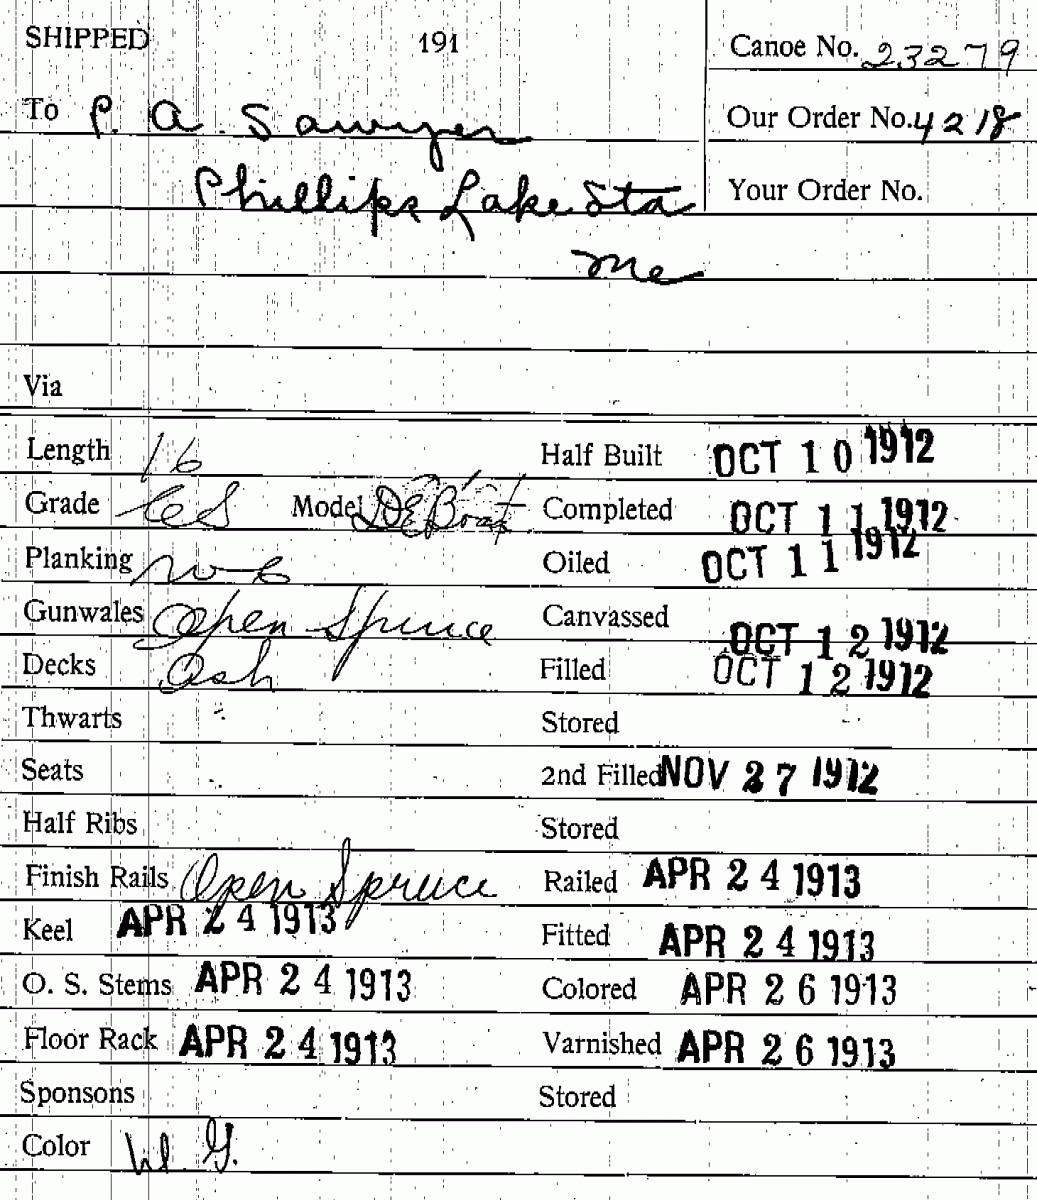 SHIPPED 191 Canoe No. 23279
To P. A. Sawyer Our Order No. 4218
Phillips Lake Sta Your Order No.
Me
Via
Length 16 Half Built OCT 10 1912
Grade CS Model DE Boat Completed OCT 11 1912
Planking W C Oiled OCT 11 1912
Gunwales Open Spruce Canvassed OCT 12 1912
Decks Ash Filled OCT 12 1912
Thwarts Stored
Seats 2nd Filled NOV 27 1912
Half Ribs Stored
Finish Rails Open Spruce Railed APR 24 1913
Keel APR 24 1913 Fitted APR 24 1913
O. S. Stems APR 24 1913 Colored APR 26 1913
Floor Rack APR 24 1913 Varnished APR 26 1913
Sponsons Stored
Color W G.